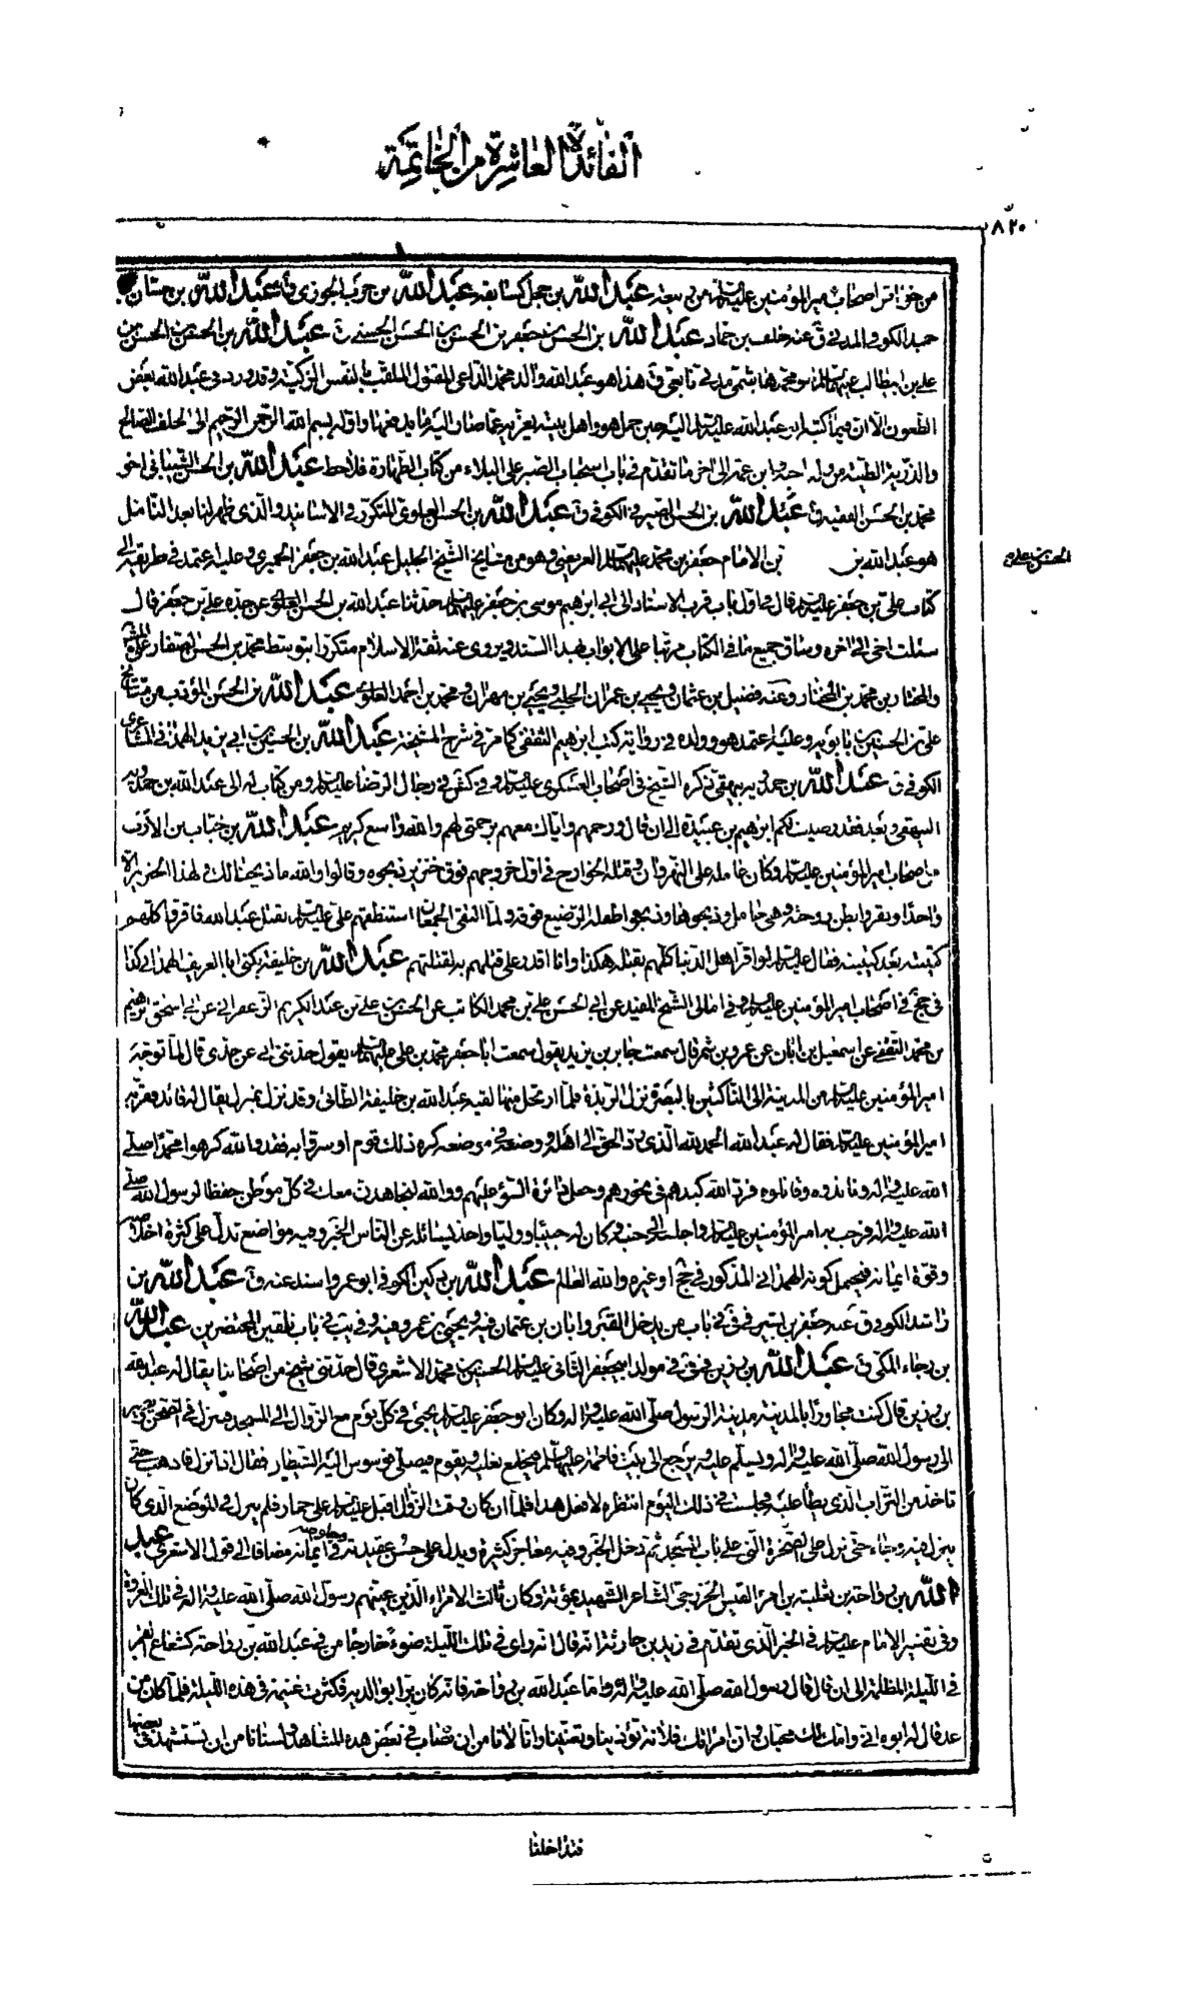 الفائدة العاشرة من الخاتمة
٨٢٠
من خواص أصحاب أمير المؤمنين عليه السلام من ربيعة عبد الله بن حجل كسابقه عبد الله بن حرب الجوزي عبد الله بن حسان بن
حميد الكوفي المدني ق عنه خلف بن حماد عبد الله بن الحسن بن جعفر بن الحسن بن الحسن الحسني ق عبد الله بن الحسن بن الحسن بن
علي بن ابيطالب عليهم السلام ابو محمد هاشمي مدني تابعي ق هذا هو عبد الله والد محمد الداعي المقتول الملقب بالنفس الزكية وقد ورد في عبد الله بعض
الطعون الا ان فيما كتب اليه ابو عبد الله عليه السلام اليه حين حمل هو واهل بيته يعزيه عما صار اليه ما يدفعها واوله بسم الله الرحمن الرحيم الى الخلف الصالح
والذرية الطيبة من ولد اخيه وابن عمه الى اخر ما تقدم في باب استحباب الصبر على البلاء من كتاب الطهارة فلاحظ عبد الله بن الحسن الشيباني اخو
محمد بن الحسن الفقيه ق عبد الله بن الحسن الصيرفي الكوفي ق عبد الله بن الحسن العلوي المتكرر في الاسانيد والذي ظهر لنا بعد التامل
هو عبد الله بن بن الامام جعفر بن محمد عليهما السلام العريضي وهو من مشايخ الشيخ الجليل عبد الله بن جعفر الحميري وعليه اعتمد في طريقه الى
الحسن بن علي
كتاب علي بن جعفر عليه السلام قال في اول باب قرب الاسناد الى ابي ابراهيم موسى بن جعفر عليهما السلام حدثنا عبد الله بن الحسن العلوي عن جده علي بن جعفر قال
سئلت اخي الى اخره وساق جميع ما في الكتاب مرتبا على الابواب بهذا السند ويروي عنه ثقة الاسلام متكررا بتوسط محمد بن الحسن الصفار
والمختار بن محمد بن المختار وعنه فضيل بن عثمان ويحيى بن عمران الحلبي ويحيى بن مهران ومحمد بن احمد العلوي عبد الله بن الحسن المؤدب من مشايخ
علي بن الحسين بن بابويه وعليه اعتمد هو وولده في رواية كتب ابراهيم الثقفي كما مر في شرح المشيخة عبد الله بن الحسين بن ابي يزيد الهمداني المشاعري
الكوفي ق عبد الله بن حمدويه بيهقي ذكره الشيخ في اصحاب العسكري عليه السلام وفي كش في رجال الرضا عليه السلام ومن كتاب له الى عبد الله بن حمدويه
البيهقي وبعد فقد وصيت لكم ابراهيم بن عبدة الى ان قال ورحمهم واياك معهم برحمتي لهم والله واسع كريم عبد الله بن خباب بن الارت
من اصحاب امير المؤمنين عليه السلام وكان عامله على النهروان وقتله الخوارج في اول خروجهم فوق خنزير ذبحوه وقالوا والله ما ذبحنا لك ولهذا الخنزير الا
واحدا وبقروا بطن زوجته وهي حامل وذبحوها وذبحوا طفله الرضيع فوقه ولما التقى الجمعان استنطقهم علي عليه السلام بقتل عبد الله فاقروا كلهم
كتيبة بعد كتيبة فقال عليه السلام لو اقر اهل الدنيا كلهم بقتله هكذا وانا اقدر على قتلهم به لقتلتهم عبد الله بن خليفة يكنى ابا العريف الهمداني كذا
في جخ في اصحاب امير المؤمنين عليه السلام وفي امالي الشيخ المفيد عن ابي الحسن علي بن محمد الكاتب عن الحسن بن علي بن عبد الكريم الزعفراني عن ابي اسحق ابراهيم
بن محمد الثقفي عن اسمعيل بن ابان عن عمرو بن شمر قال سمعت جابر بن يزيد يقول سمعت ابا جعفر محمد بن علي عليهما السلام يقول حدثني ابي عن جدي قال لما توجه
امير المؤمنين عليه السلام من المدينة الى الناكثين بالبصرة نزل الربذة فلما ارتحل منها لقيه عبد الله بن خليفة الطائي وقد نزل بمنزل يقال له فائد فقربه
امير المؤمنين عليه السلام فقال له عبد الله الحمد لله الذي رد الحق الى اهله ووضعه في موضعه كره ذلك قوم او سروا به فقد والله كرهوا محمدا صلى
الله عليه واله ونابذوه وقاتلوه فرد الله كيدهم في نحورهم وجعل دائرة السوء عليهم ووالله لنجاهدن معك في كل موطن حفظا لرسول الله صلى
الله عليه واله فرحب به امير المؤمنين عليه السلام واجلسه الى جنبه وكان له حبيبا ووليا واخذ يسائله عن الناس الخبر وفيه مواضع تدل على كثرة اخلاصه
وقوة ايمانه فيحتمل كونه الهمداني المذكور في جخ او غيره والله العالم عبد الله بن دكين الكوفي ابو عمر واسند عنه ق عبد الله بن
راشد الكوفي ق عنه جعفر بن بشير في في باب من يدخل القبر وابان بن عثمان فيه ويحيى بن عمرو فيه وفي يب في باب تلقين المحتضرين عبد الله
بن رجاء المكي ق عبد الله بن رزين في في مولد ابيجعفر الثاني عليه السلام الحسين بن محمد الاشعري قال حدثني شيخ من اصحابنا يقال له عبد الله
بن رزين قال كنت مجاورا بالمدينة مدينة الرسول صلى الله عليه واله وكان ابو جعفر عليه السلام يجيئ في كل يوم مع الزوال الى المسجد فينزل في الصحن ويصير
الى رسول الله صلى الله عليه واله ويسلم عليه ويرجع الى بيت فاطمة عليها السلام فيخلع نعليه ويقوم فيصلي فوسوس اليه الشيطان فقال اذا نزل فاذهب حتى
تاخذ من التراب الذي يطأ عليه فجلست في ذلك اليوم انتظره لافعل هذا فلما ان كان وقت الزوال اقبل عليه السلام على حمار فلم ينزل في الموضع الذي كان
ينزل فيه وجاء حتى نزل على الصخرة التي على باب المسجد ثم دخل الخبر وفيه معاجز كثيرة ويدل على حسن عقيدته في ايمانه مضافا الى قول الاشعري عبد
الله بن رواحة بن ثعلبة بن امرء القيس الخزرجي الشاعر الشهيد بموته وكان ثالث الامراء الذين عينهم رسول الله صلى الله عليه واله في تلك الغزوة
وفي تفسير الامام عليه السلام في الخبر الذي تقدم في زيد بن حارثة انه قال انه راى في تلك الليلة ضوء خارجا من في عبد الله بن رواحة كشعاع القمر
في الليلة المظلمة الى ان قال قال رسول الله صلى الله عليه واله واما عبد الله بن رواحة فانه كان برا بوالديه فكثرت غنيمته في هذه الليلة فلما كان من
غد قال له ابوه اني وامك لك محبان وان امراتك فلانة تؤذينا وتعنينا وانا لا نامن ان تصاب في بعض هذه المشاهد ولسنا نامن ان تستشهد في بعضها
فتداخلنا